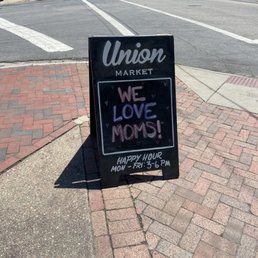 Union
MARKET
WE
LOVE
MOMS!
HAPPY HOUR
MON - FRI 3-6 PM